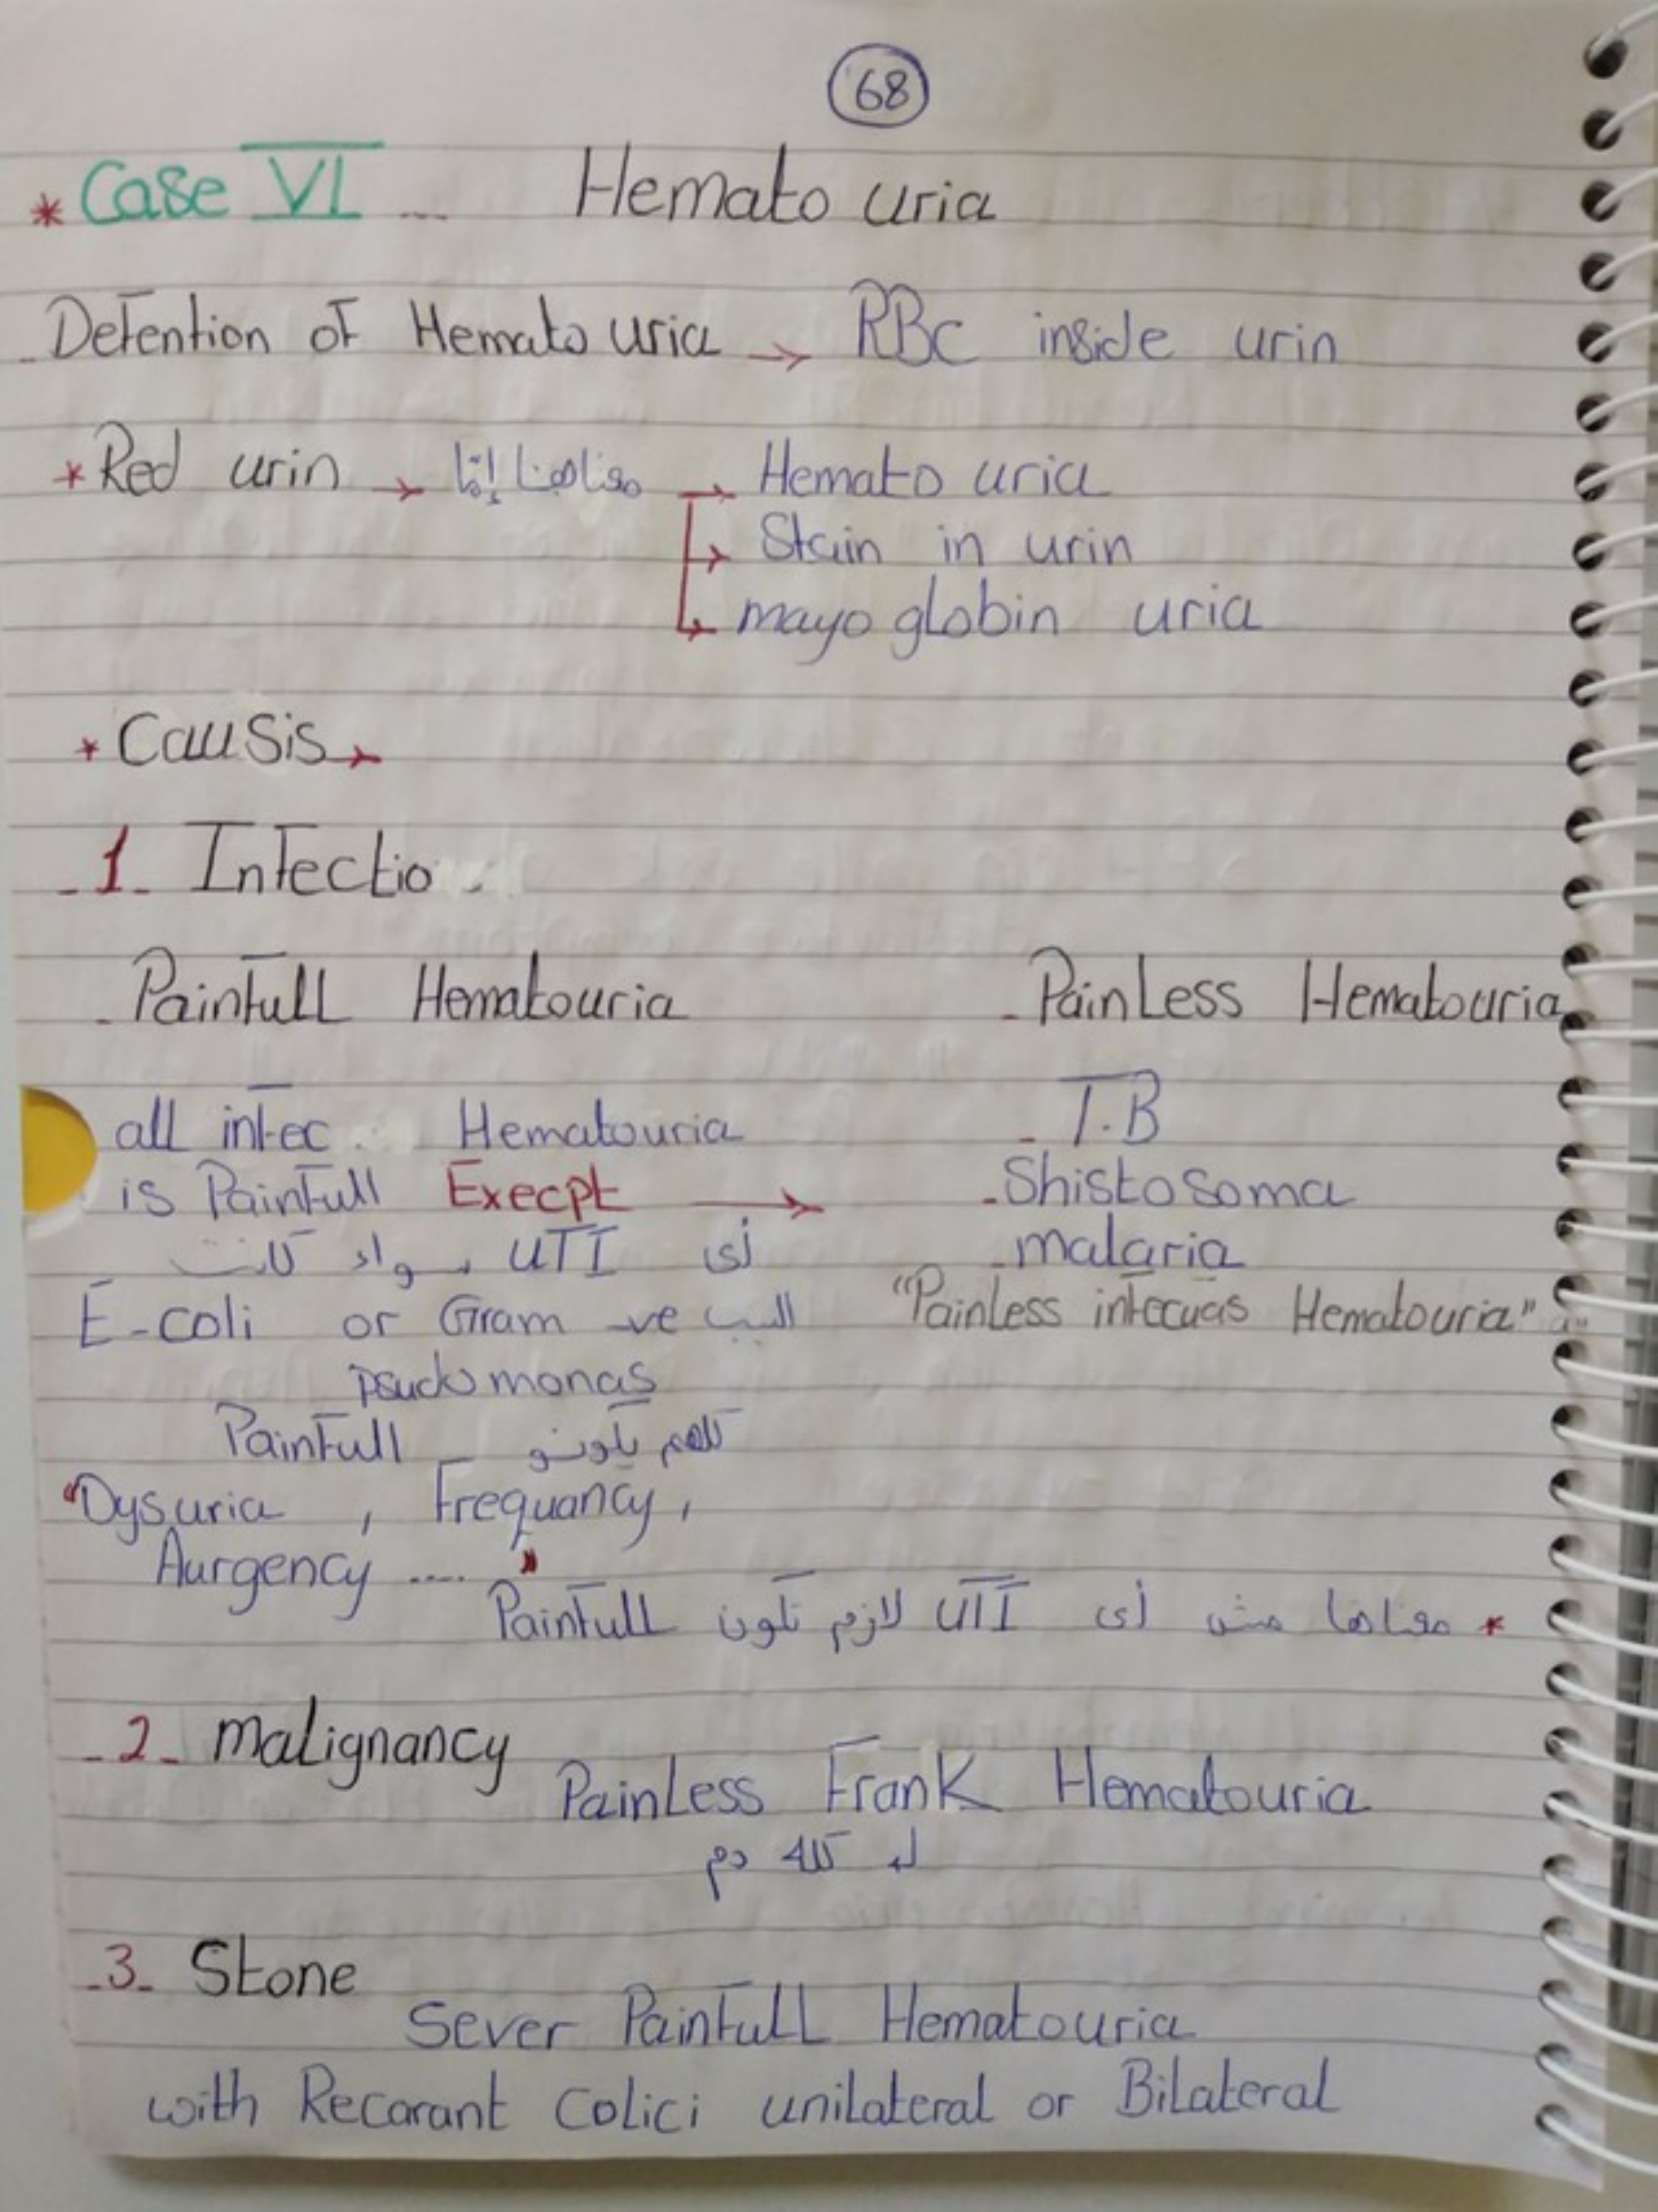 68
* Case VI ... Hemato uria
Defention of Hemato uria → RBC inside urin
* Red urin → معناهنا إما → Hemato uria
→ Stain in urin
→ mayo globin uria
* Causis →
-1- Infectio
- Painfull Hematouria
all infec Hematouria
is Painfull Execpt →
أى UTI سواء كانت
E-coli or Gram -ve السبب
psudomonas
Painfull كلهم يكونو
"Dysuria , Frequancy ,
Aurgency .... "
- PainLess Hematouria
- T.B
- Shistosoma
- malaria
"Painless infecuas Hematouria"
* معناها مش أى UTI لازم تكون Painfull
-2- malignancy
PainLess Frank Hematouria
له كله دم
-3- Stone
Sever PainfuLL Hematouria
with Recarant Colici unilateral or Bilateral